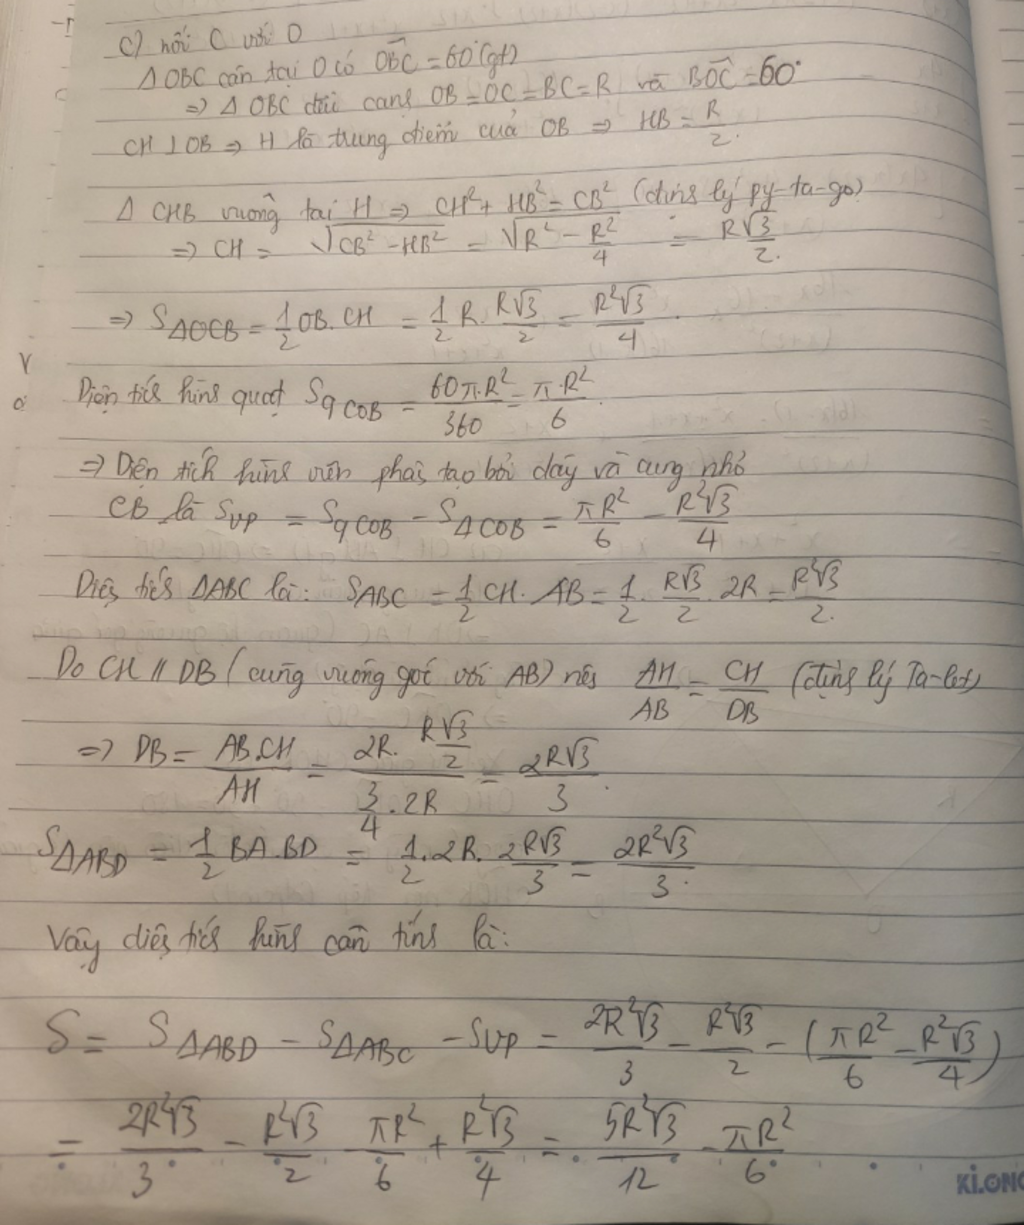 c) nối C với O
Δ OBC cân tại O có OBC = 60° (gt)
⇒ Δ OBC đều cạnh OB = OC = BC = R và BOC = 60°
CH ⊥ OB ⇒ H là trung điểm của OB ⇒ HB = R/2.
Δ CHB vuông tại H ⇒ CH² + HB² = CB² (định lý py-ta-go)
⇒ CH = √(CB² - HB²) = √(R² - R²/4) = R√3/2.
⇒ SΔOCB = 1/2 OB. CH = 1/2 R. R√3/2 = R²√3/4.
Diện tích hình quạt Sq COB = 60π.R²/360 = π.R²/6.
⇒ Diện tích hình viên phân tạo bởi dây và cung nhỏ
CB là Svp = Sq COB - SΔCOB = πR²/6 - R²√3/4
Diện tích ΔABC là: SABC = 1/2 CH. AB = 1/2. R√3/2. 2R = R²√3/2.
Do CH // DB (cùng vuông góc với AB) nên AH/AB = CH/DB (định lý Ta-let)
⇒ DB = AB.CH/AH = (2R. R√3/2)/(3/4 . 2R) = 2R√3/3.
SΔABD = 1/2 BA.BD = 1/2. 2R. 2R√3/3 = 2R²√3/3.
Vậy diện tích hình cần tính là:
S = SΔABD - SΔABC - Svp = 2R²√3/3 - R²√3/2 - (πR²/6 - R²√3/4)
= 2R²√3/3 - R²√3/2 - πR²/6 + R²√3/4 = 5R²√3/12 - πR²/6
KLONG